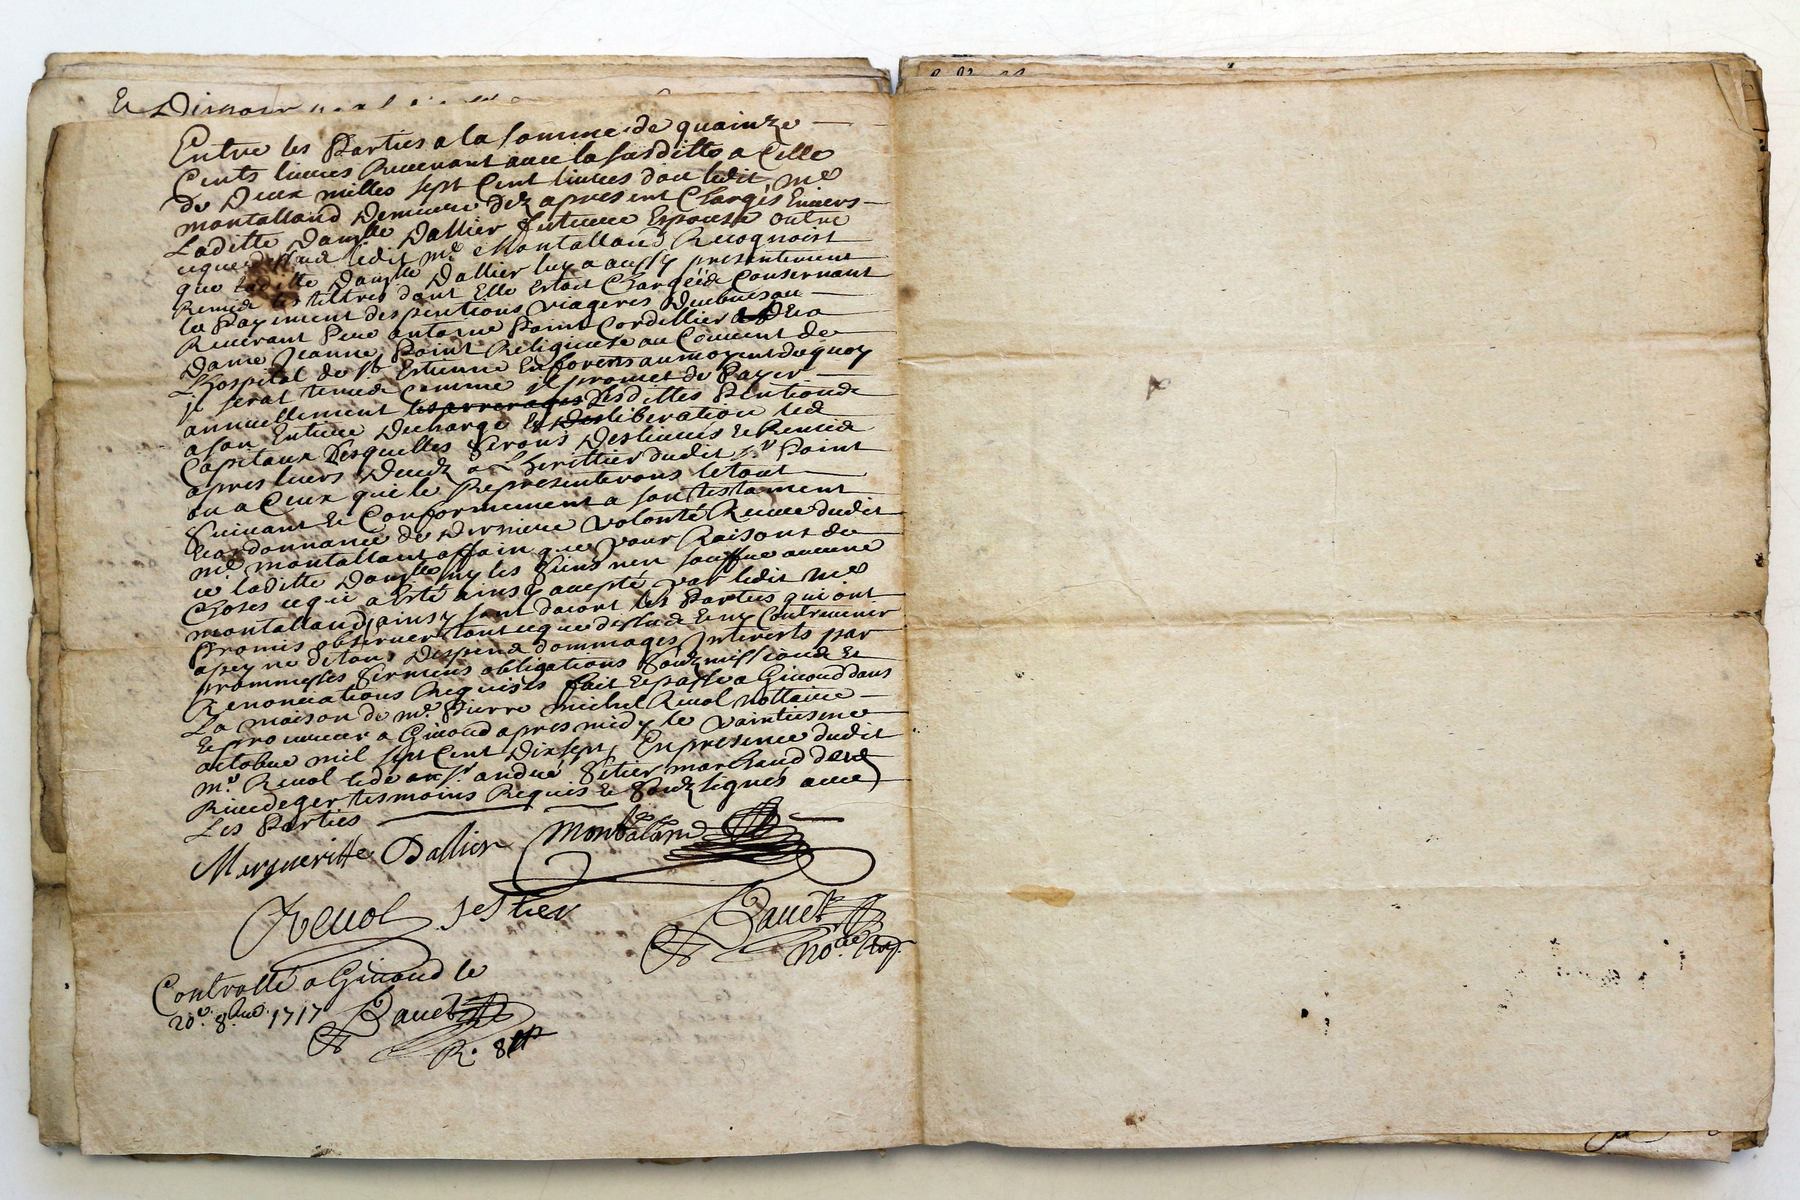 Entre les Parties a la somme de quainze
Cents livres Revenant avec la susditte a Celle
de Deux milles sept Cent livres dont ledit Me
montalland Demeure dez apresent Chargés Envers
Laditte Damlle Dallier future Espouse outre
ce que dessus ledit Me Montalland Recognoist
que laditte Damlle Dallier luy a aussy presentement
Remis les tiltres dont Elle estoit Chargée Consernant
le Payement des pentions viageres Deubues au
Reverant Pere antoine Point Cordellier & De a
Dame Jeanne Point Religieuse au Couvent de
L'hospital de St Estienne En forets au moyent de quoy
il serat tenus Comme il promet de Payer
annuellement les arrerages Desdittes Pentions
a son Entiere Decharge & Desliberation les
Capitaux Desquelles seront Deslivrés & Remis
apres leurs Deces a L'herittier dudit Sr Point
ou a Ceux qui le Representeront le tout
suivant & Conformement a son testament
& ordonnance de Derniere volonté Receu dudit
Me montalland affain que pour Raisont de
ce laditte Damlle ny les siens n'en souffre aucune
Choses ce qui a esté ainsy accepté par ledit Me
montalland, ainsy sont dacort les Parties qui ont
Promis observer tout ce que dessus & ny Contrevenir
a peyne de tous Despens dommages Interests par
prommesses serments obligations soubzmissions &
Renonciations Requises fait & passé a Givord dans
La maison de Me Pierre michel Revol nottaire
& procureur a Givord apres midy le vaintiesme
octobre mil sept Cent Dixsept, En presence dudit
Me Revol & de Sr andré Setier marchand de
Rivedeger tesmoins Requis & soubzsignés avec
Les Parties
Merguerite Dallier Montaland
Revol Sestier
Bauet
Nore Roy.
Controllé a Givord le
20e 8bre 1717
Bauet
R.